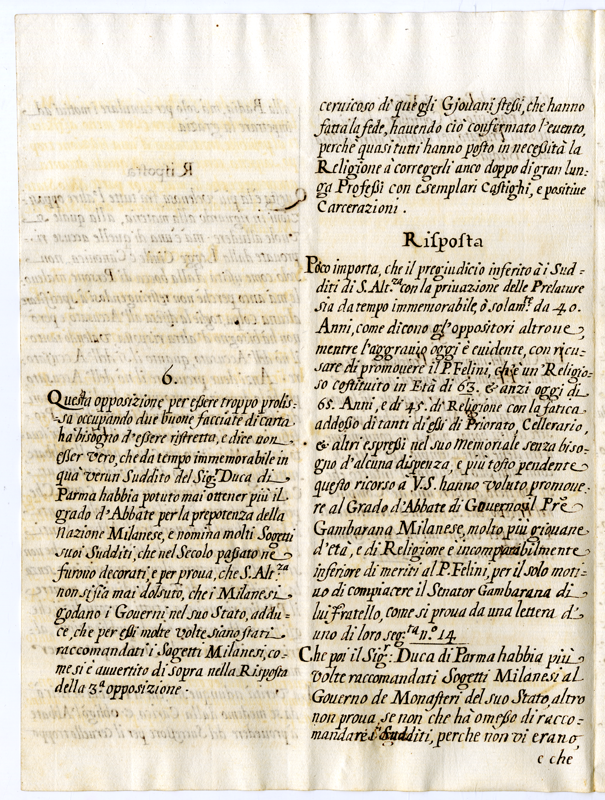 6.
Questa opposizione per essere troppo prolis-
-sa occupando due buone facciate di carta
ha bisogno d'essere ristretta, e dice non
esser vero, che da tempo immemorabile in
quà verun Suddito del Sig.r Duca di
Parma habbia potuto mai ottener più il
grado d'Abbate per la prepotenza della
Nazione Milanese, e nomina molti Sogetti
suoi Sudditi, che nel Secolo passato ne
furono decorati, e per proua, che S. Alt.za
non si sia mai dolsuto, che i Milanesi
godano i Gouerni nel suo Stato, addu-
ce, che per essi molte volte siano stati
raccomandati i Sogetti Milanesi, co-
me si è auuertito di sopra nella Risposta
della 3.a opposizione.
ceruicoso di quegli Giouani stessi, che hanno
fatta la fede, hauendo ciò confermato l'euento,
perche quasi tutti hanno posto in necessità la
Religione à corregerli anco doppo di gran lun-
ga Professi con esemplari Castighi, e positiue
Carcerazioni.
Risposta
Poco importa, che il pregiudicio inferito à i Sud-
diti di S. Alt.za con la priuazione delle Prelature
sia da tempo immemorabile, ò solam.te da 40.
Anni, come dicono gl'oppositori altroue,
mentre l'aggrauio oggi è euidente, con ricu-
sare di promouere il P. Felini, che è un' Religio-
so costituito in Età di 63. & anzi oggi di
65. Anni, e di 45. di Religione con la fatica
addosso di tanti di essi di Priorato, Cellerario,
& altri espressi nel suo Memoriale senza biso-
gno d'alcuna dispenza, e più tosto pendente
questo ricorso à V.S. hanno voluto promoue-
re al Grado d'Abbate di Gouerno il Pre
Gambarana Milanese, molto più giouane
d'età, e di Religione e incomparabilmente
inferiore di meriti al P. Felini, per il solo moti-
uo di compiacere il Senator Gambarana di
lui fratello, come si proua da una lettera d'
uno di loro seg.ta n.o 14.
Che poi il Sig.r Duca di Parma habbia più
volte raccomandati Sogetti Milanesi al
Gouerno de Monasteri del suo Stato, altro
non proua, se non che hà omesso di racco-
mandare i Sudditi, perche non vi erano,
e che